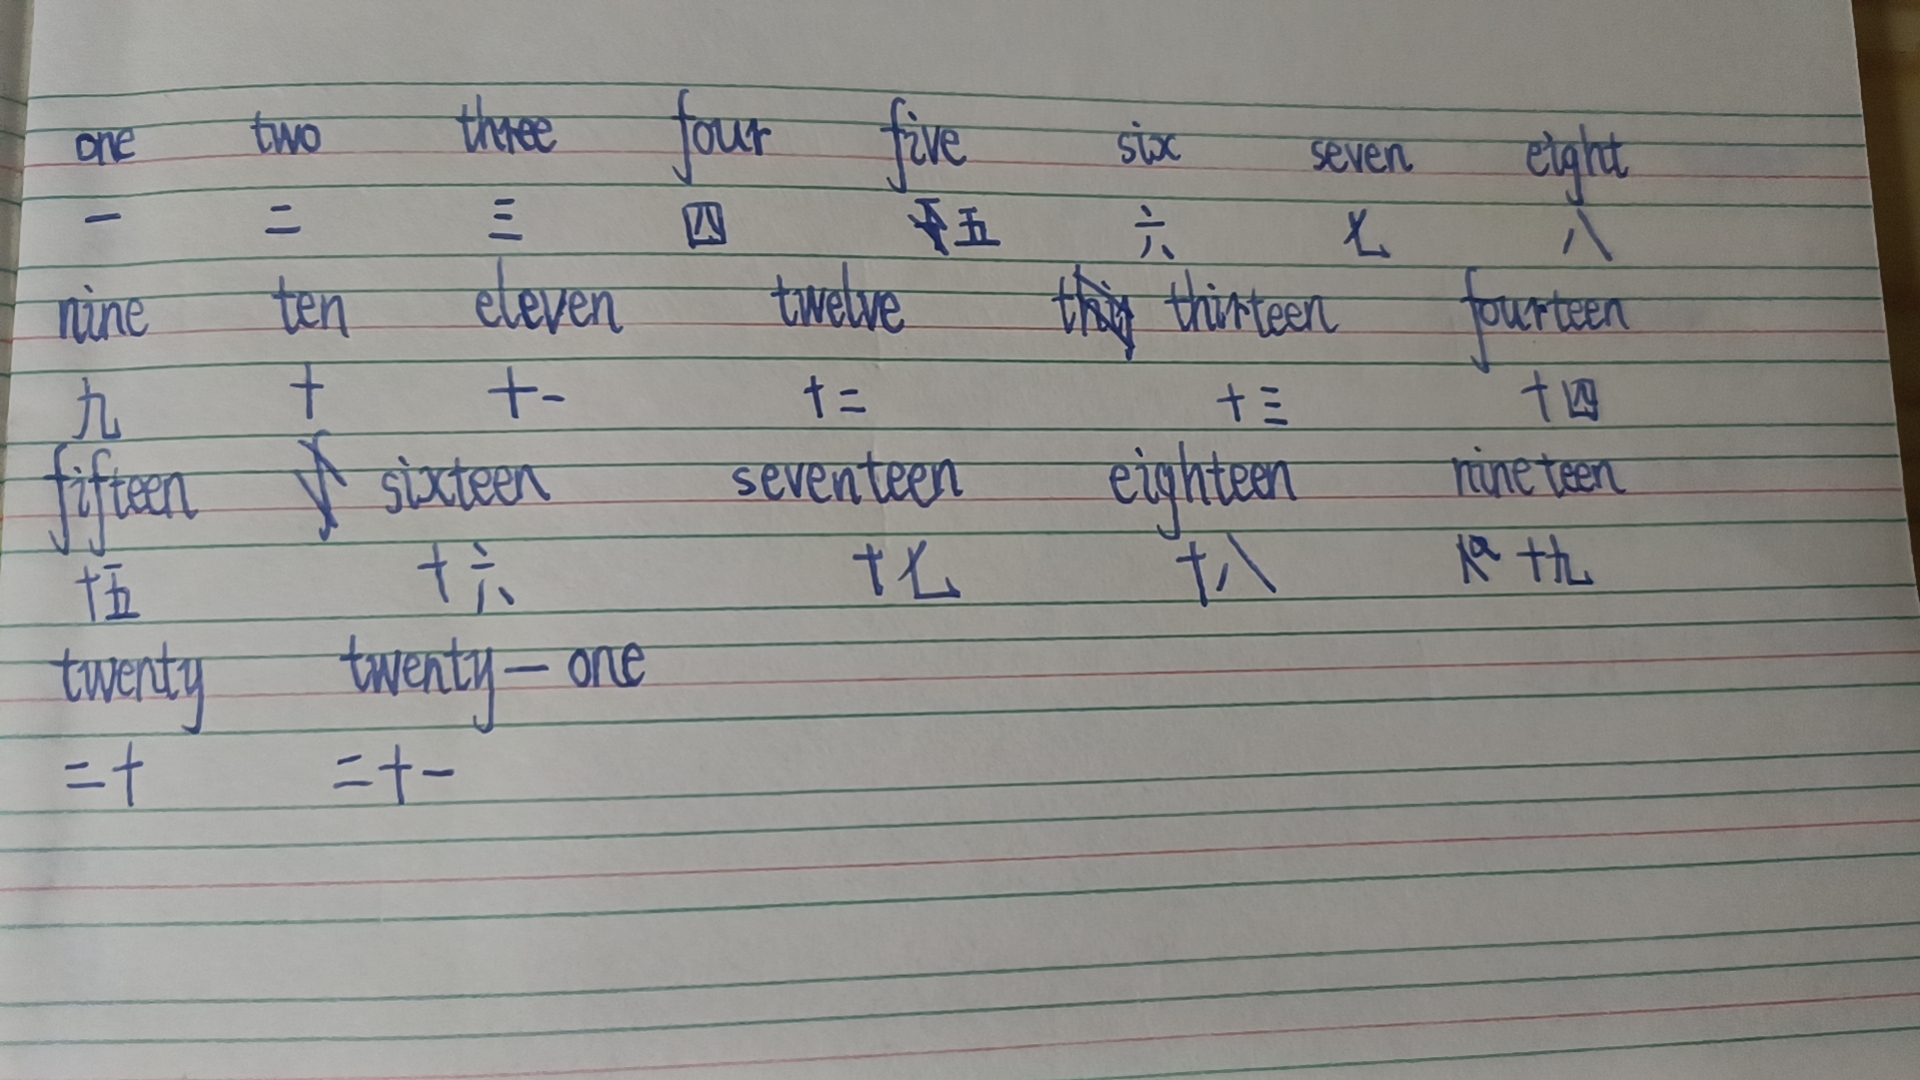 one two three four five six seven eight
一 二 三 四 五 六 七 八
nine ten eleven twelve thirteen fourteen
九 十 十一 十二 十三 十四
fifteen sixteen seventeen eighteen nineteen
十五 十六 十七 十八 十九
twenty twenty-one
二十 二十一